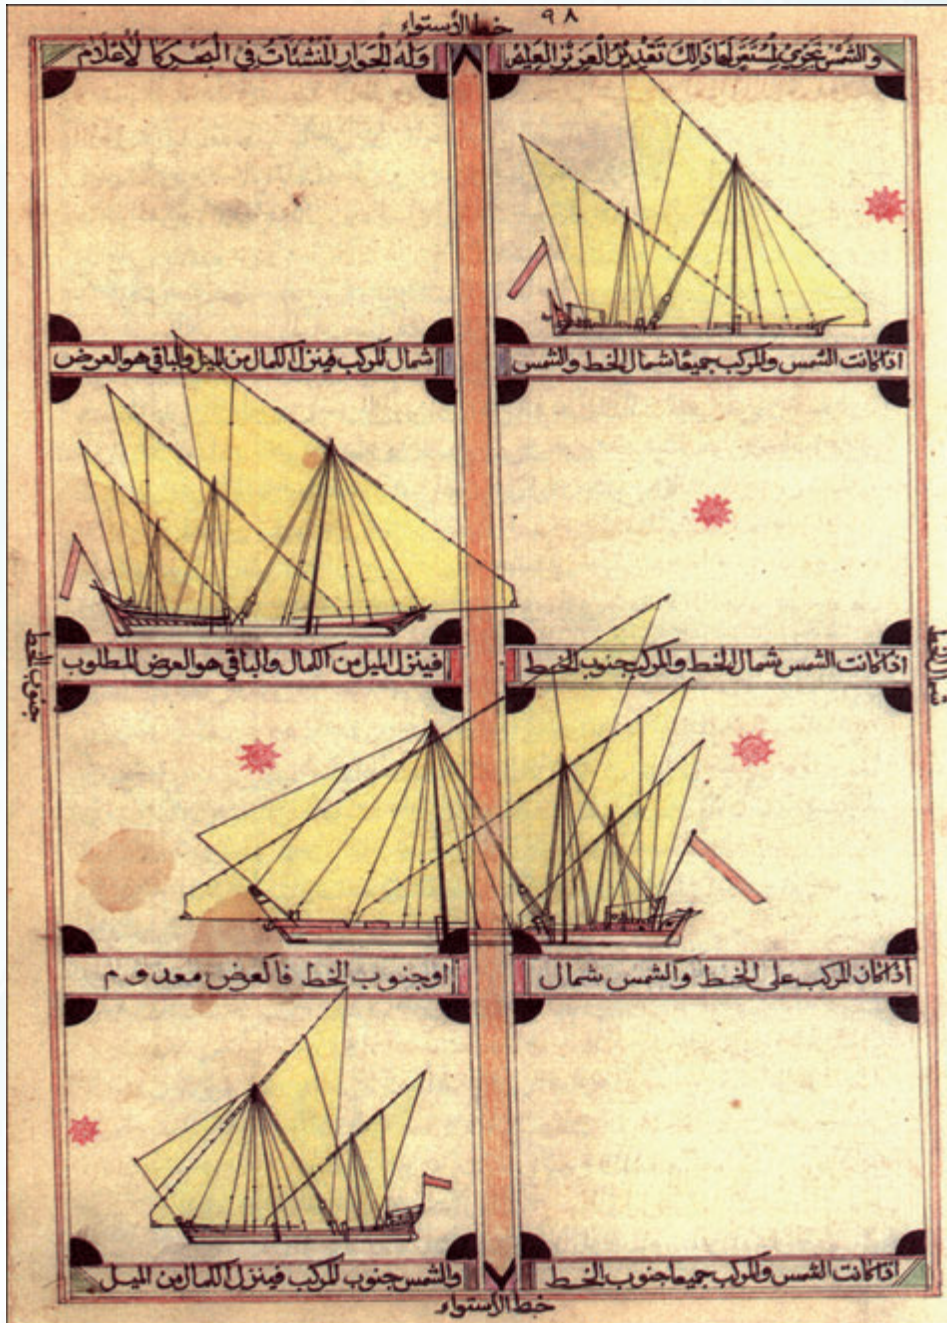 ٩٨
خط الأستواء
والشمس تجري لمستقر لها ذالك تقدير العزيز العليم وله الجوار المنشئات في البحر كالأعلام
اذا كانت الشمس والمركب جميعًا شمال الخط والشمس شمال المركب فينزل الكمال من الميل والباقي هو العرض
اذا كانت الشمس شمال الخط والمركب جنوب الخط فينزل الميل من الكمال والباقي هو العرض المطلوب
شمال الخط
جنوب الخط
اذا كان المركب على الخط والشمس شمال او جنوب الخط فالعرض معدوم
اذا كانت الشمس والمركب جميعا جنوب الخط والشمس جنوب المركب فينزل الكمال من الميل
خط الأستواء